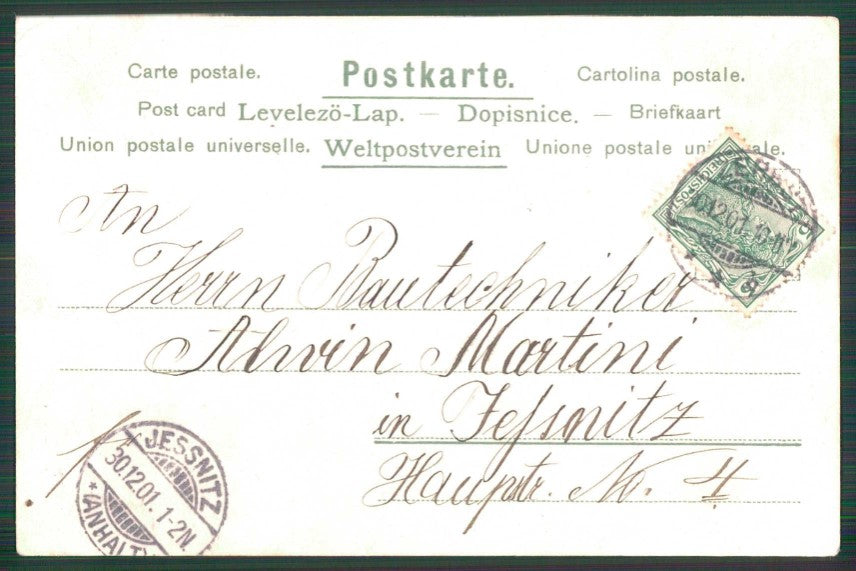 Carte postale. Postkarte. Cartolina postale.
Post card Levelezö-Lap. — Dopisnice. — Briefkaart
Union postale universelle. Weltpostverein Unione postale
An
Herrn Bautechniker
Alwin Martini
in Jeßnitz
Hauptstr. No. 4
JESSNITZ
30.12.01. 1-2N.
* (ANHALT)